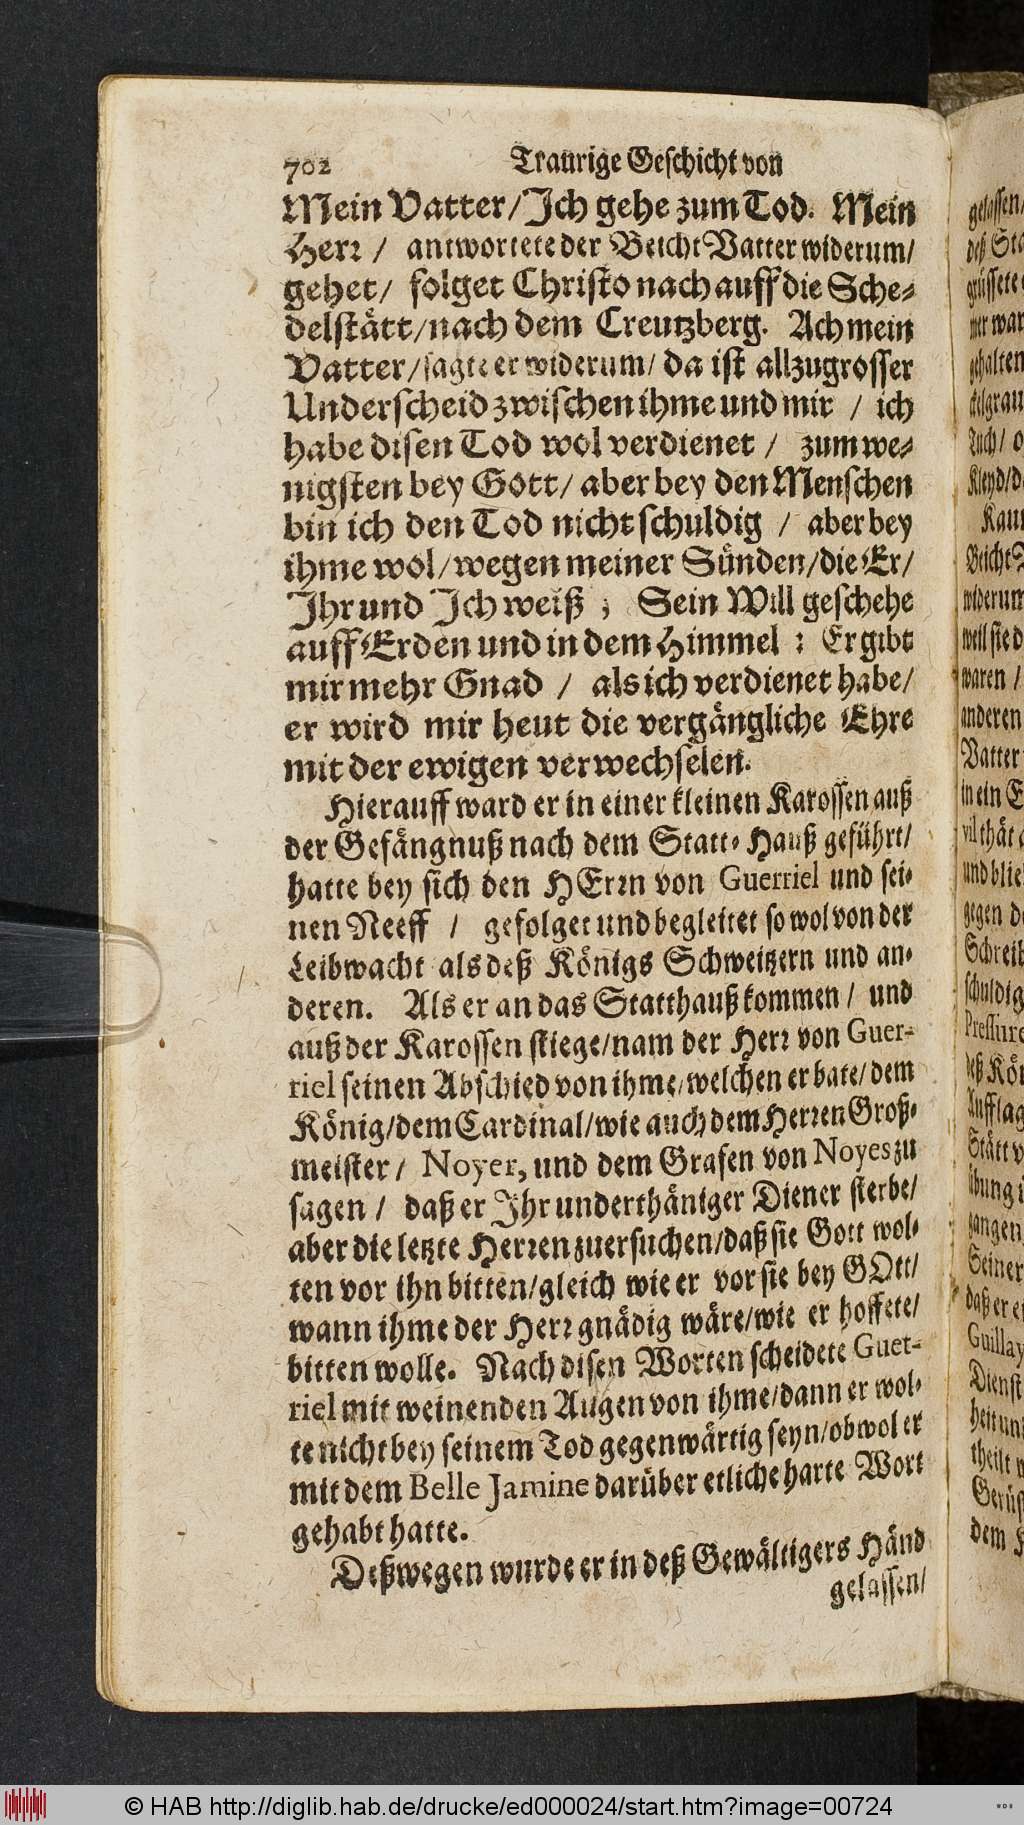 702 Traurige Geschicht von
Mein Vatter/Ich gehe zum Tod. Mein
Herr / antwortete der Beicht Vatter widerum/
gehet/ folget Christo nach auff die Sche-
delstätt/nach dem Creutzberg. Ach mein
Vatter/sagte er widerum/ da ist allzugrosser
Underscheid zwischen ihme und mir / ich
habe disen Tod wol verdienet / zum we-
nigsten bey Gott/ aber bey den Menschen
bin ich den Tod nicht schuldig / aber bey
ihme wol/wegen meiner Sünden/die Er/
Ihr und Ich weiß ; Sein Will geschehe
auff Erden und in dem Himmel : Er gibt
mir mehr Gnad / als ich verdienet habe/
er wird mir heut die vergängliche Ehre
mit der ewigen verwechselen.
Hierauff ward er in einer kleinen Karossen auß
der Gefängnuß nach dem Statt-Hauß geführt/
hatte bey sich den HErrn von Guerriel und sei-
nen Neeff / gefolget und begleitet so wol von der
Leibwacht als deß Königs Schweitzern und an-
deren. Als er an das Statthauß kommen / und
auß der Karossen stiege/nam der Herr von Guer-
riel seinen Abschied von ihme/welchen er bate/dem
König/dem Cardinal/wie auch dem Herren Groß-
meister/ Noyer, und dem Grafen von Noyes zu
sagen / daß er Ihr underthäniger Diener sterbe/
aber die letzte Herren zuersuchen/daß sie Gott wol-
ten vor ihn bitten/gleich wie er vor sie bey GOtt/
wann ihme der Herr gnädig wäre/wie er hoffete/
bitten wolle. Nach disen Worten scheidete Guer-
riel mit weinenden Augen von ihme/dann er wol-
te nicht bey seinem Tod gegenwärtig seyn/obwol er
mit dem Belle Jamine darüber etliche harte Wort
gehabt hatte.
Deßwegen wurde er in deß Gewältigers Händ
gelassen/
gelassen/
deß Sta
grüssete
ner war
gehalten
Tuch/ o
Kleyd/d
Kau
Beicht V
widerum
weil sie d
waren /
anderen
Vatter
in ein E
vil thät
und blie
gegen de
Schreib
schuldig
Pressure
deß Kön
Aufflag
Stätt v
übung i
gangen
Seiner
daß er ei
Guillay
Dienst
heit un
theilt
Gerüst
dem
© HAB http://diglib.hab.de/drucke/ed000024/start.htm?image=00724